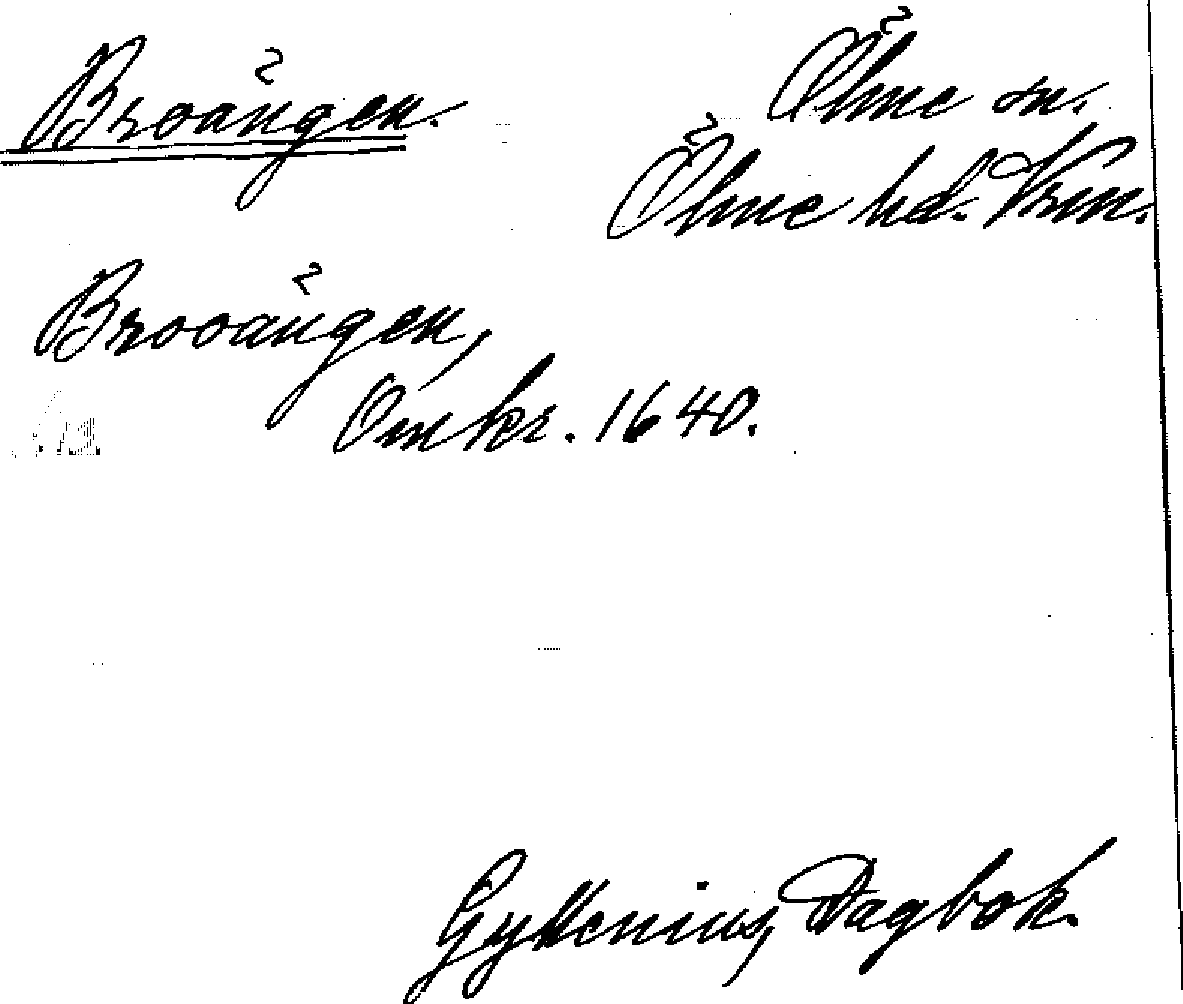 Broängen.
Ölme sn.
Ölme hd. Vrm.
Brooängen,
Omkr. 1640.
Gyllenius, Dagbok.